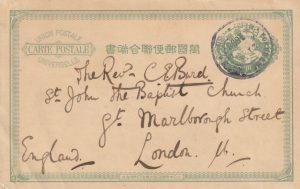 UNION POSTALE
CARTE POSTALE
UNIVERSELLE
書端合聯便郵國萬
The Revd C E Bird.
St John The Baptist Church
Gt Marlborough Street
England. London W.